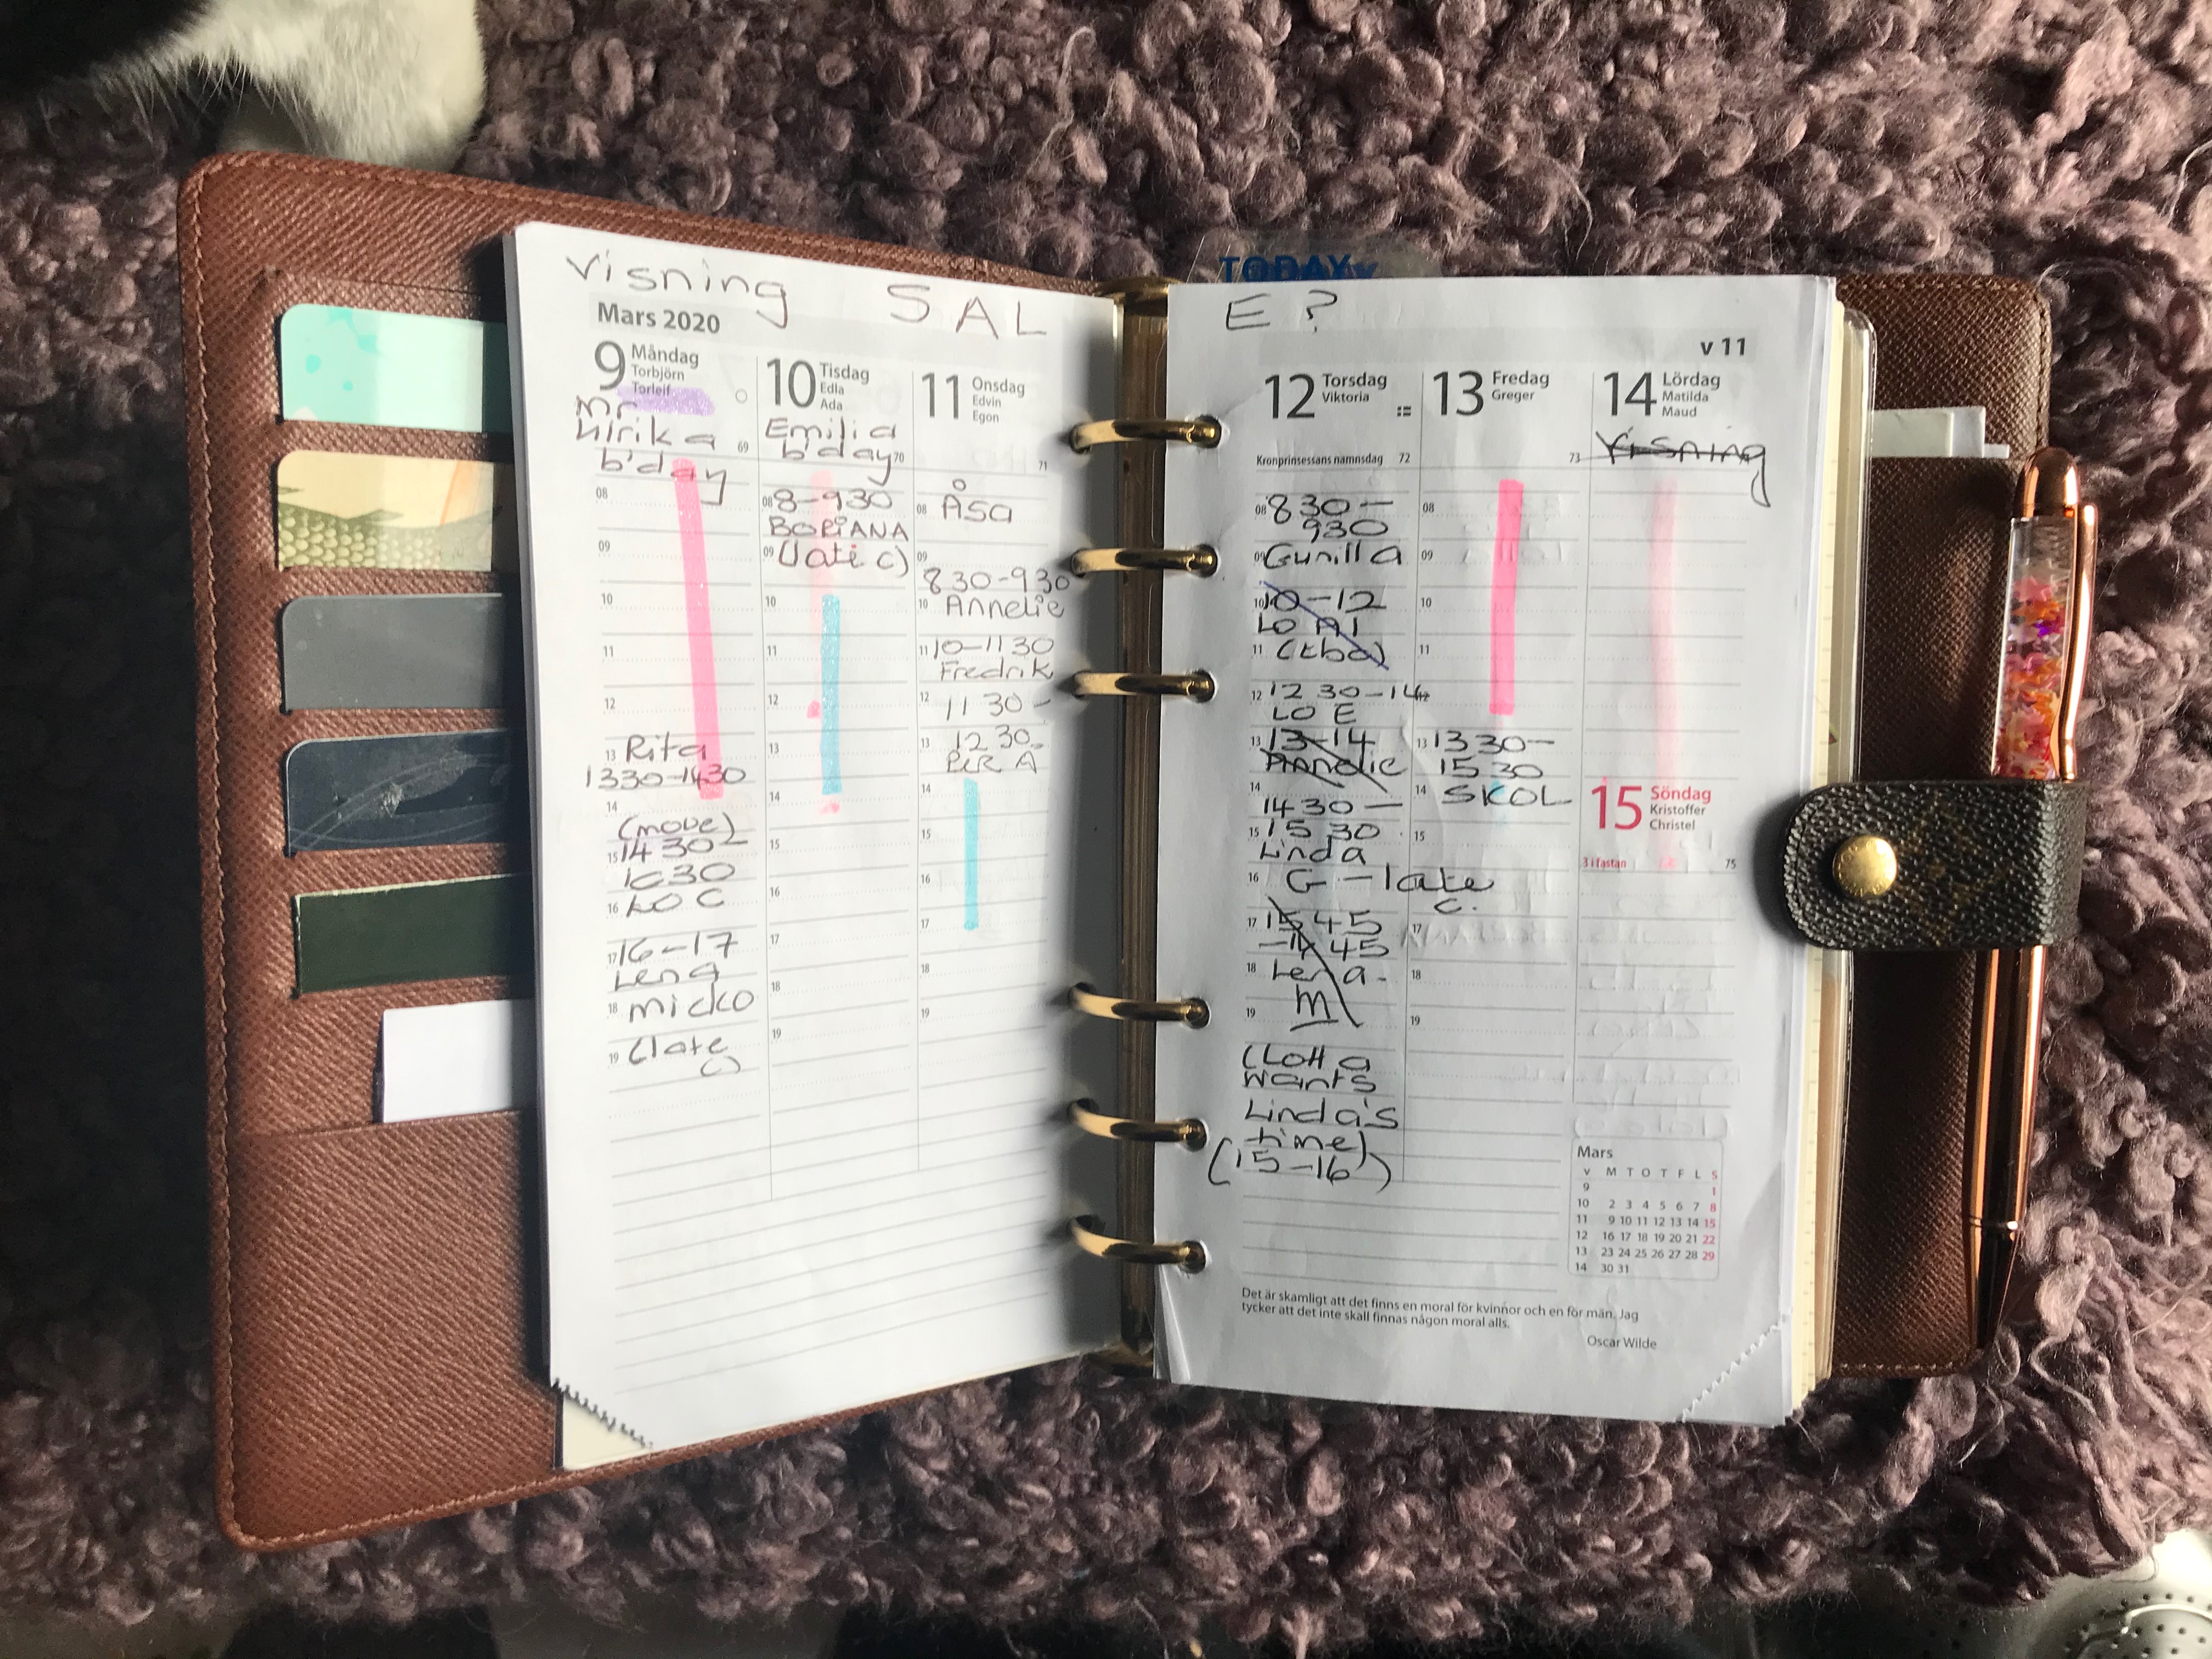 TODAY
visning SAL
Mars 2020
9 Måndag
Torbjörn
Torleif
Mr
Ulrika
b'day
69
08
09
10
11
12
13 Rita
1330-1430
14
(move)
15 1430-
1630
16 LO C
17 16-17
Lena
18 micko
19 (late
c)
10 Tisdag
Edla
Ada
Emilia
b'day 70
08 8-930
BORIANA
09 (late c)
10
11
12
13
14
15
16
17
18
19
11 Onsdag
Edvin
Egon
71
08 Åsa
09
830-930
10 Annelie
11 10-1130
Fredrik
12 1130-
13 1230
PER A
14
15
16
17
18
19
E ?
v 11
12 Torsdag
Viktoria
Kronprinsessans namnsdag 72
08 830-
930
09 Gunilla
10 10-12
LO A1
11 (tba)
12 1230-14
LO E
13 13-14
Annelie
14
1430-
15 1530
Linda
16 G-late
c.
17 1545
18 Lena.
19 M
(Lotta
wants
Linda's
time)
(15-16)
13 Fredag
Greger
73
08
09
10
11
13 1330-
1530
14 SKOL
15
17
18
19
14 Lördag
Matilda
Maud
Visning
15 Söndag
Kristoffer
Christel
3 i fastan 75
Mars
v M T O T F L S
9 1
10 2 3 4 5 6 7 8
11 9 10 11 12 13 14 15
12 16 17 18 19 20 21 22
13 23 24 25 26 27 28 29
14 30 31
Det är skamligt att det finns en moral för kvinnor och en för män. Jag
tycker att det inte skall finnas någon moral alls.
Oscar Wilde